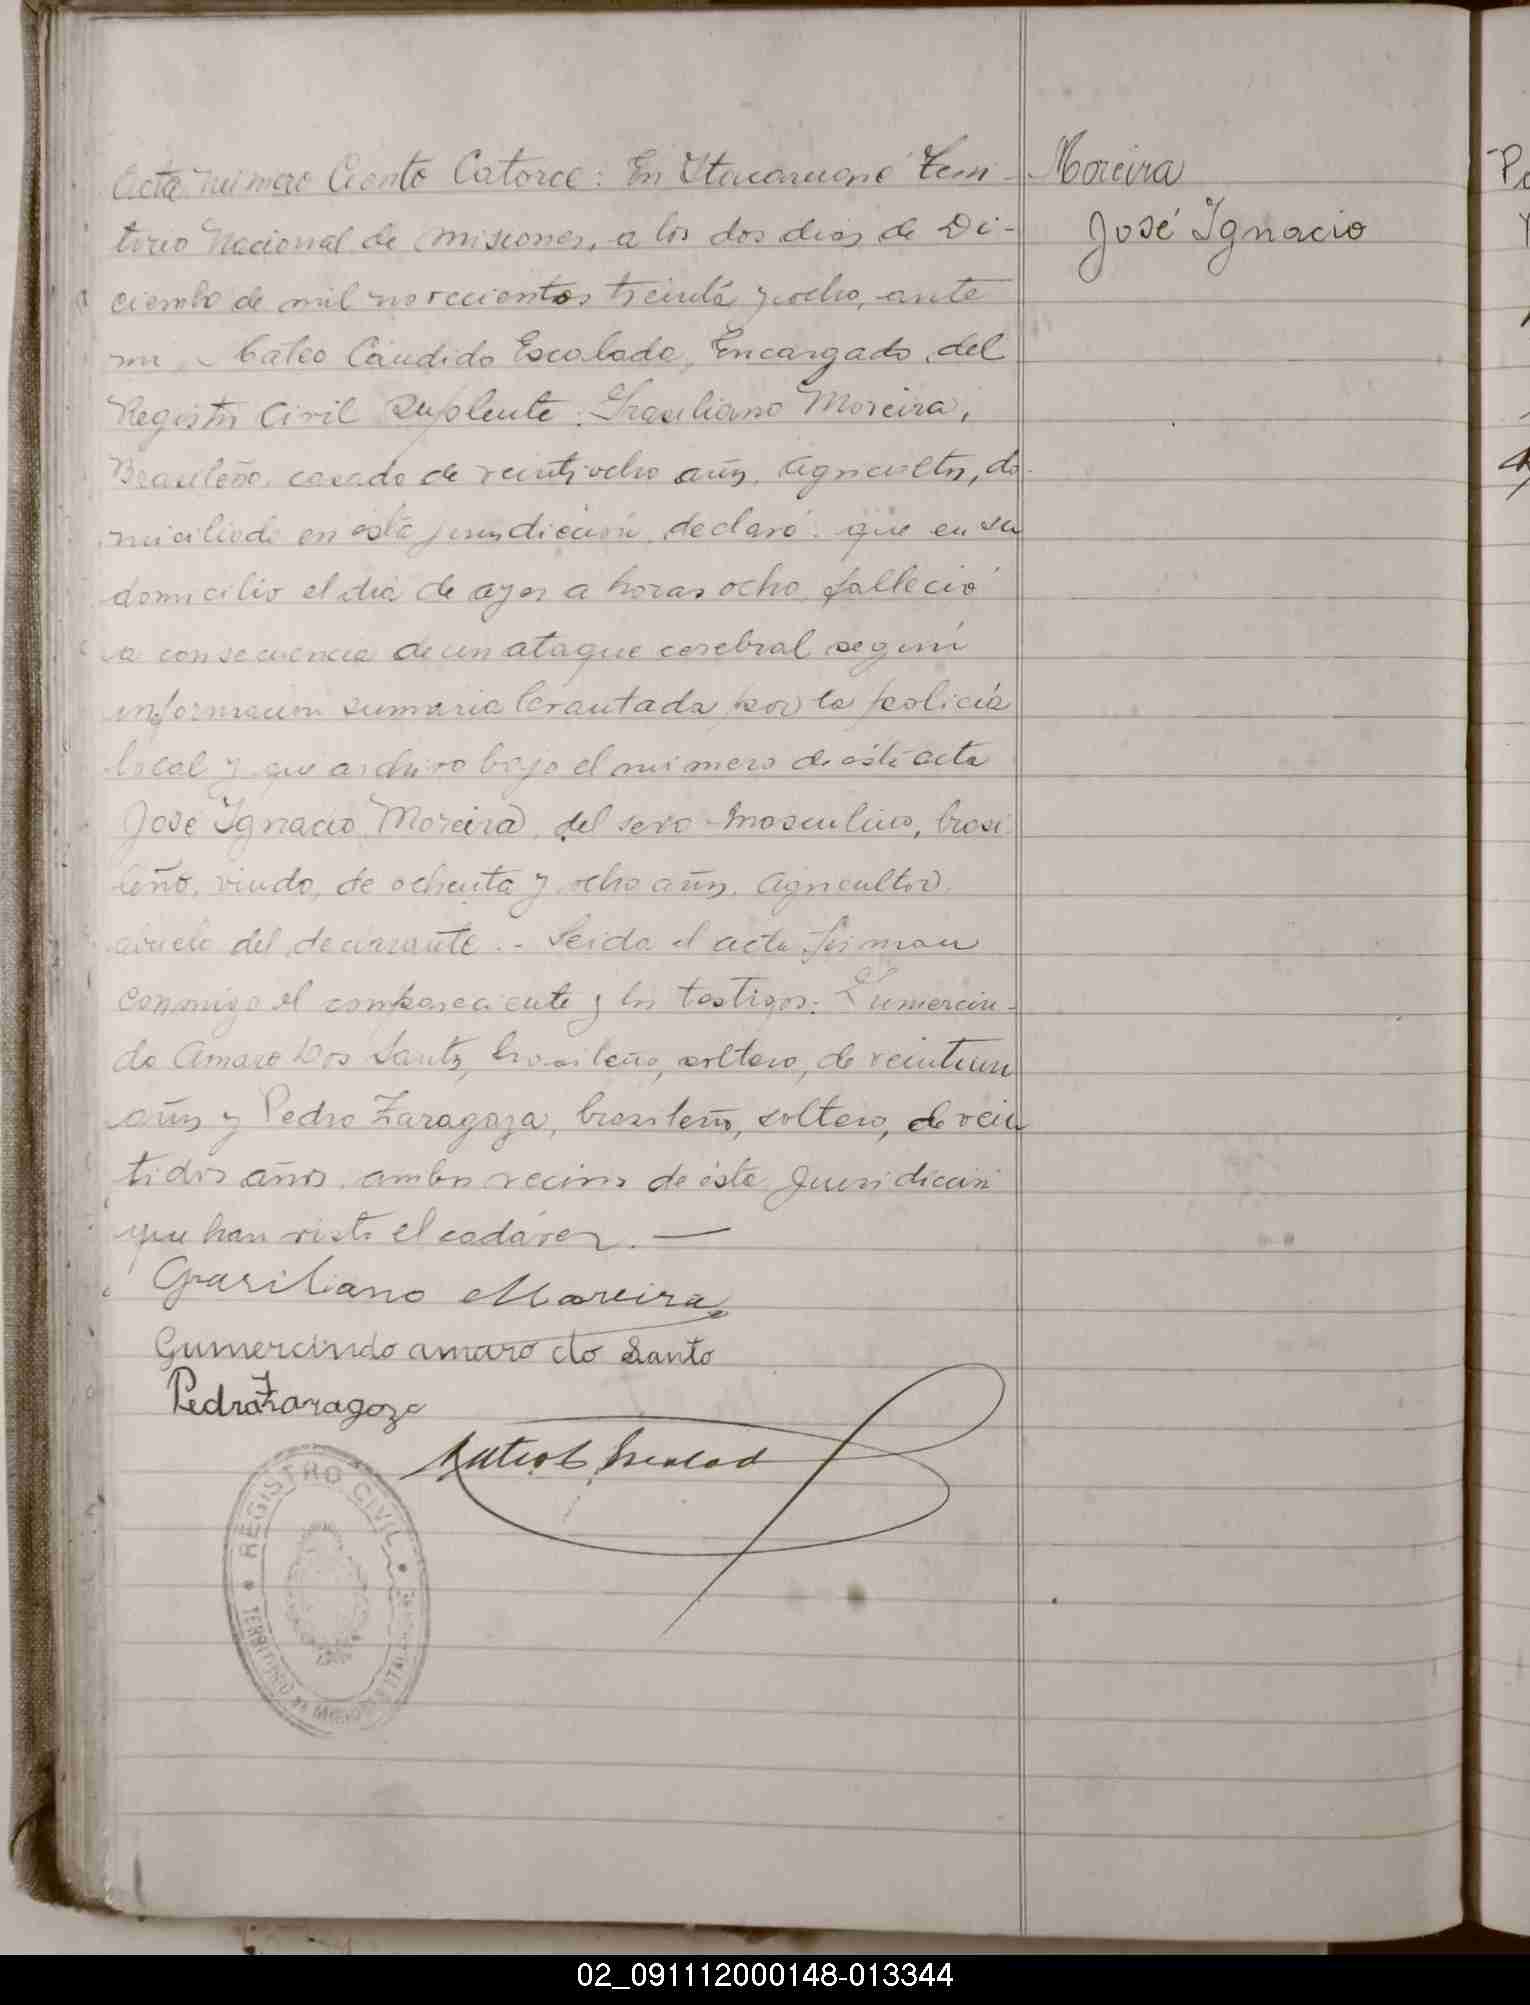 Acta número Ciento Catorce: En Itacaruaré Terri-
torio Nacional de Misiones, a los dos dias de Di-
ciembre de mil novecientos treinta y ocho, ante
mi, Mateo Cándido Escalada, Encargado del
Registro Civil Suplente: Grasiliano Moreira,
Brasileño, casado de veintiocho años, agricultor, do-
miciliado en ésta jurisdicción, declaró: que en su
domicilio el dia de ayer a horas ocho, falleció
a consecuencia de un ataque cerebral según
información sumaria levantada por la policía
local y que archivo bajo el número de ésta acta
José Ignacio Moreira, del sexo masculino, brasi-
leño, viudo, de ochenta y ocho años, agricultor,
abuelo del declarante.- Leida el acta firman
conmigo el compareciente y los testigos: Gumercin-
do Amaro Dos Santos, brasileño, soltero, de veintiun
años y Pedro Zaragoza, brasileño, soltero, de vein
tidos años, ambos vecinos de ésta Jurisdicción
que han visto el cadáver. —
Grasiliano Moreira
Gumercindo amaro do Santo
Pedro Zaragoza
Mateo C. Escalad
REGISTRO CIVIL
TERRITORIO DE MISIONES
Moreira
José Ignacio
02_091112000148-013344